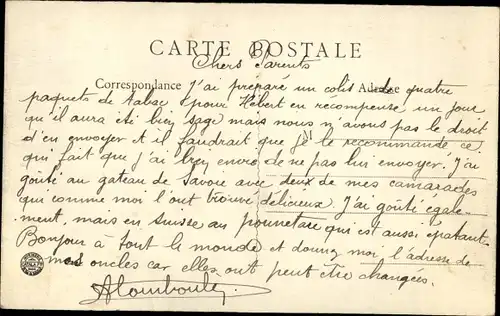 CARTE POSTALE
Chers Parents
Correspondance Adresse
J'ai préparé un colis de quatre
paquets de tabac pour Hébert en récompense un jour
qu'il aura été bien sage mais nous n'avons pas le droit
d'en envoyer et il faudrait que je le recommande ce
qui fait que j'ai bien envie de ne pas lui envoyer. J'ai
goûté au gateau de Savoie avec deux de mes camarades
qui comme moi l'ont trouvé délicieux. J'ai goûté égale-
ment, mais en suisse au qui est aussi épatant.
Bonjour à tout le monde et donnez moi l'adresse de
mes oncles car elles ont peut être changées.